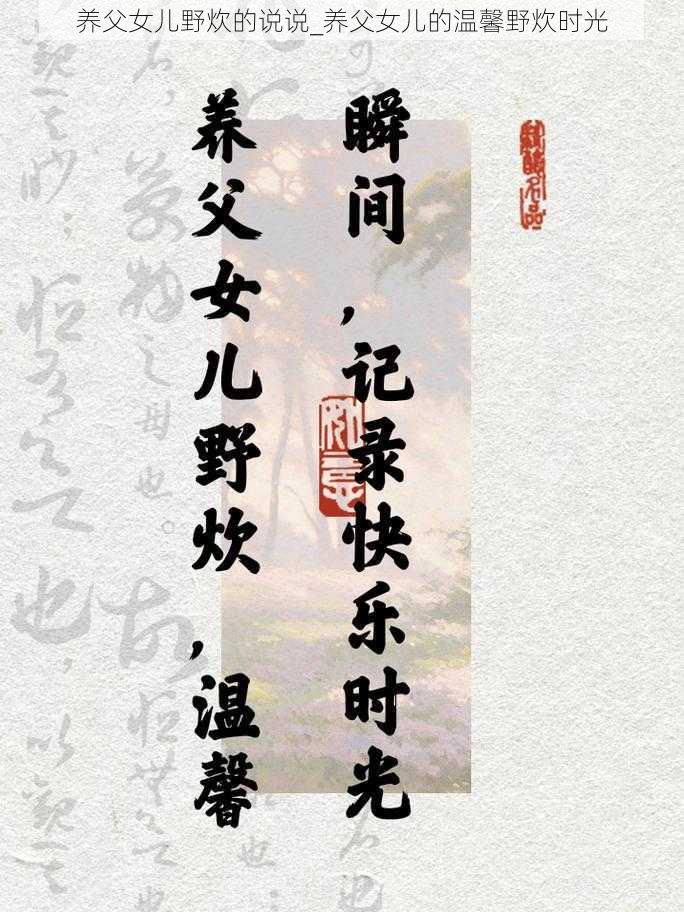 养父女儿野炊的说说_养父女儿的温馨野炊时光
养父女儿野炊,温馨
瞬间,记录快乐时光
名,萬物之母也。